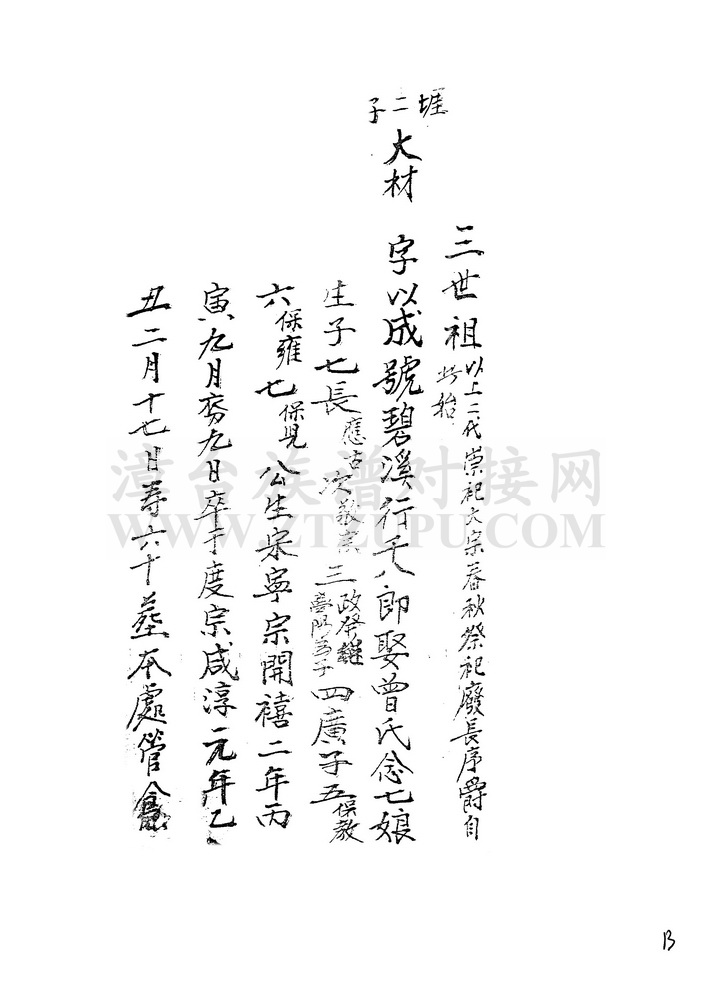 三世祖以上二代崇祀大宗春秋祭祀廢長序爵自此始
堐二子
大材 字以成號碧溪行千八郎娶曾氏念七娘
生子七長應古次敬實三政發繼為子四廣子五保教
六保雍七保兒公生宋寧宗開禧二年丙
寅九月夯九日卒于度宗咸淳元年乙
丑二月十七日壽六十葬本處管
漳台族谱对接网
WWW.ZTZUPU.COM
13